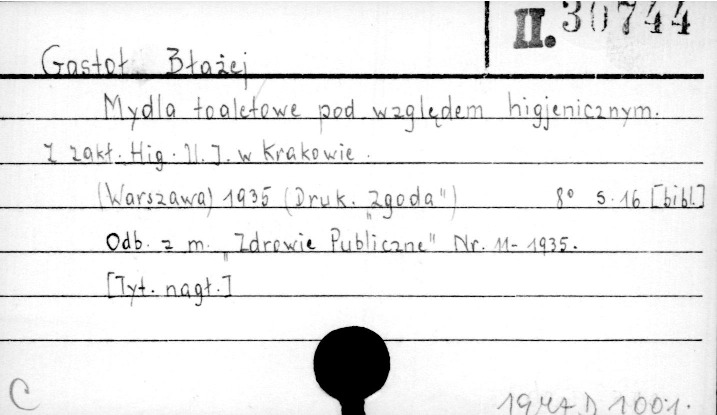 II. 30744
Gastoł Błażej
Mydła toaletowe pod względem higjenicznym.
Z zakł. Hig. U. J. w Krakowie.
(Warszawa) 1935 (Druk. „Zgoda")
8° s. 16 [bibl.]
Odb. z m. „Zdrowie Publiczne" Nr. 11-1935.
[Tyt. nagł.]
C